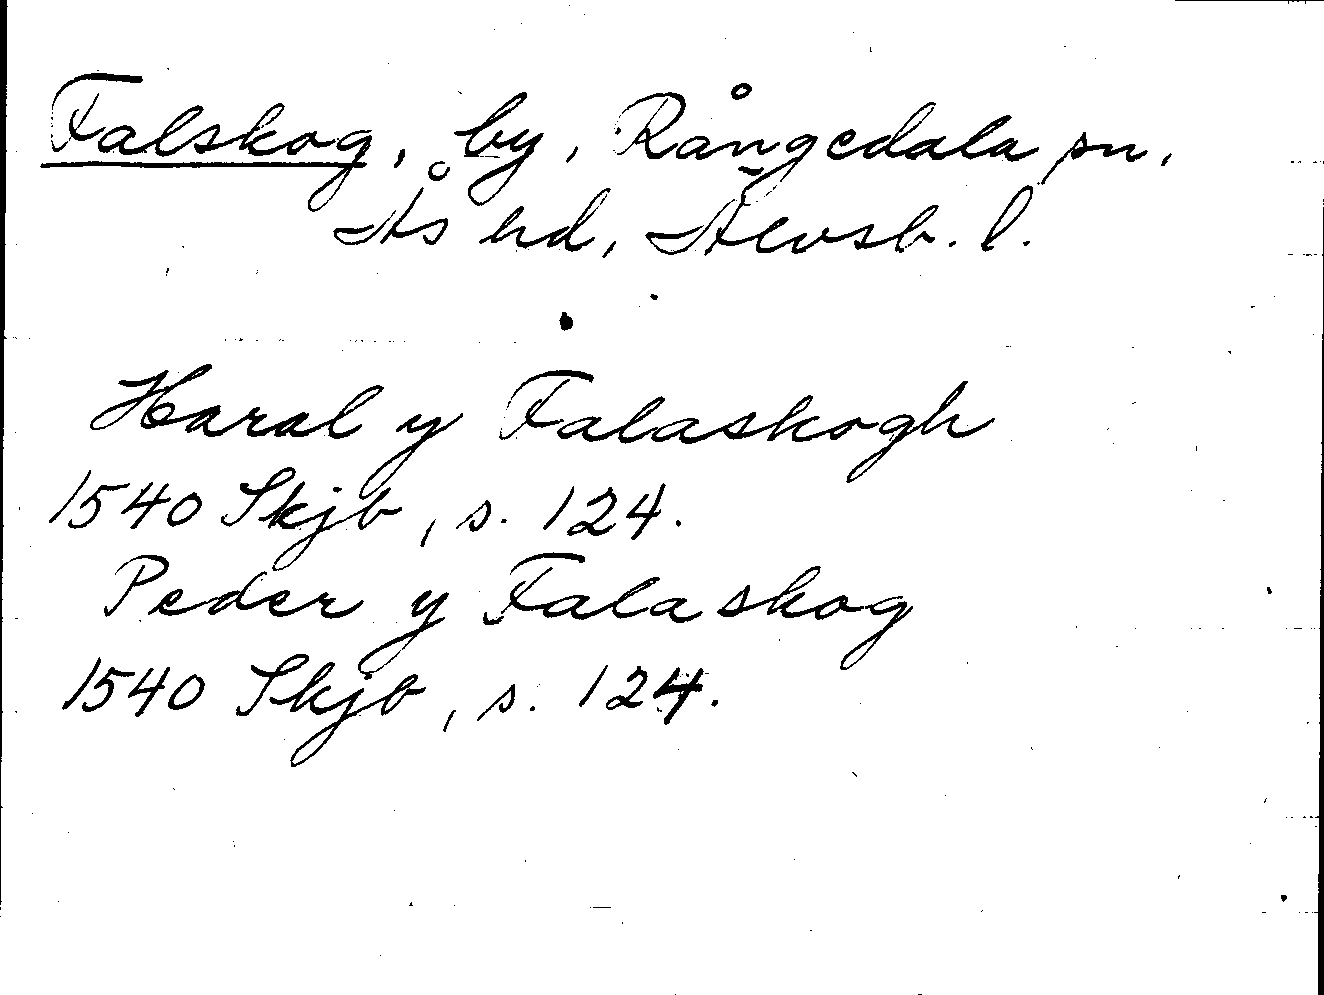 Falskog, by, Rångedala sn,
Ås hd, Älvsb. l.
Haral y Falaskogh
1540 Skjb, s. 124.
Peder y Falaskog
1540 Skjb, s. 124.